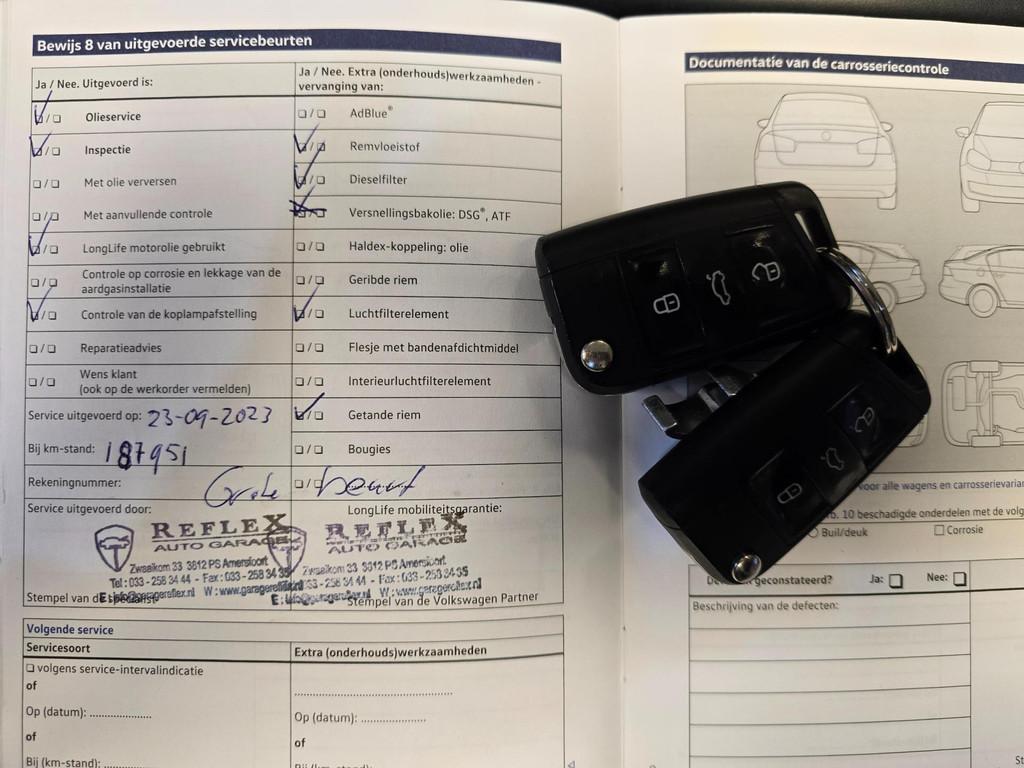 Bewijs 8 van uitgevoerde servicebeurten
Ja / Nee. Uitgevoerd is:
Ja / Nee. Extra (onderhouds)werkzaamheden - vervanging van:
Olieservice
AdBlue®
Inspectie
Remvloeistof
Met olie verversen
Dieselfilter
Met aanvullende controle
Versnellingsbakolie: DSG®, ATF
LongLife motorolie gebruikt
Haldex-koppeling: olie
Controle op corrosie en lekkage van de
aardgasinstallatie
Geribde riem
Controle van de koplampafstelling
Luchtfilterelement
Reparatieadvies
Flesje met bandenafdichtmiddel
Wens klant
(ook op de werkorder vermelden)
Interieurluchtfilterelement
Service uitgevoerd op: 23-09-2023
Getande riem
Bij km-stand: 187951
Bougies
Rekeningnummer:
Grote beurt
Service uitgevoerd door:
LongLife mobiliteitsgarantie:
REFLEX
AUTO GARAGE
Zwaaikom 33 3812 PS Amersfoort
Tel : 033 - 258 34 44 - Fax : 033 - 258 34 35
E : info@garagereflex.nl W : www.garagereflex.nl
REFLEX
AUTO GARAGE
Zwaaikom 33 3812 PS Amersfoort
033 - 258 34 44 - Fax : 033 - 258 34 35
E : info@garagereflex.nl W : www.garagereflex.nl
Stempel van de specialist
Stempel van de Volkswagen Partner
Volgende service
Servicesoort
Extra (onderhouds)werkzaamheden
volgens service-intervalindicatie
of
Op (datum): ....................
Op (datum): ....................
of
of
Bij (km-stand):
Documentatie van de carrosseriecontrole
voor alle wagens en carrosserievarian
b. 10 beschadigde onderdelen met de volg
Buil/deuk
Corrosie
geconstateerd? Ja: Nee:
Beschrijving van de defecten:
St